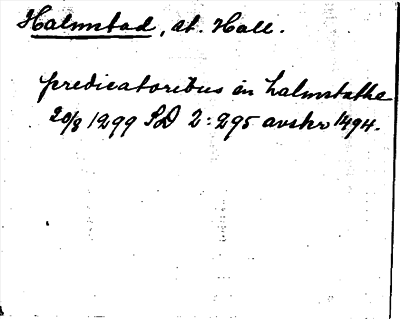 Halmstad, st. Hall.
predicatoribus in halmstathe
20/8 1299 SD 2:295 avskr 1494.